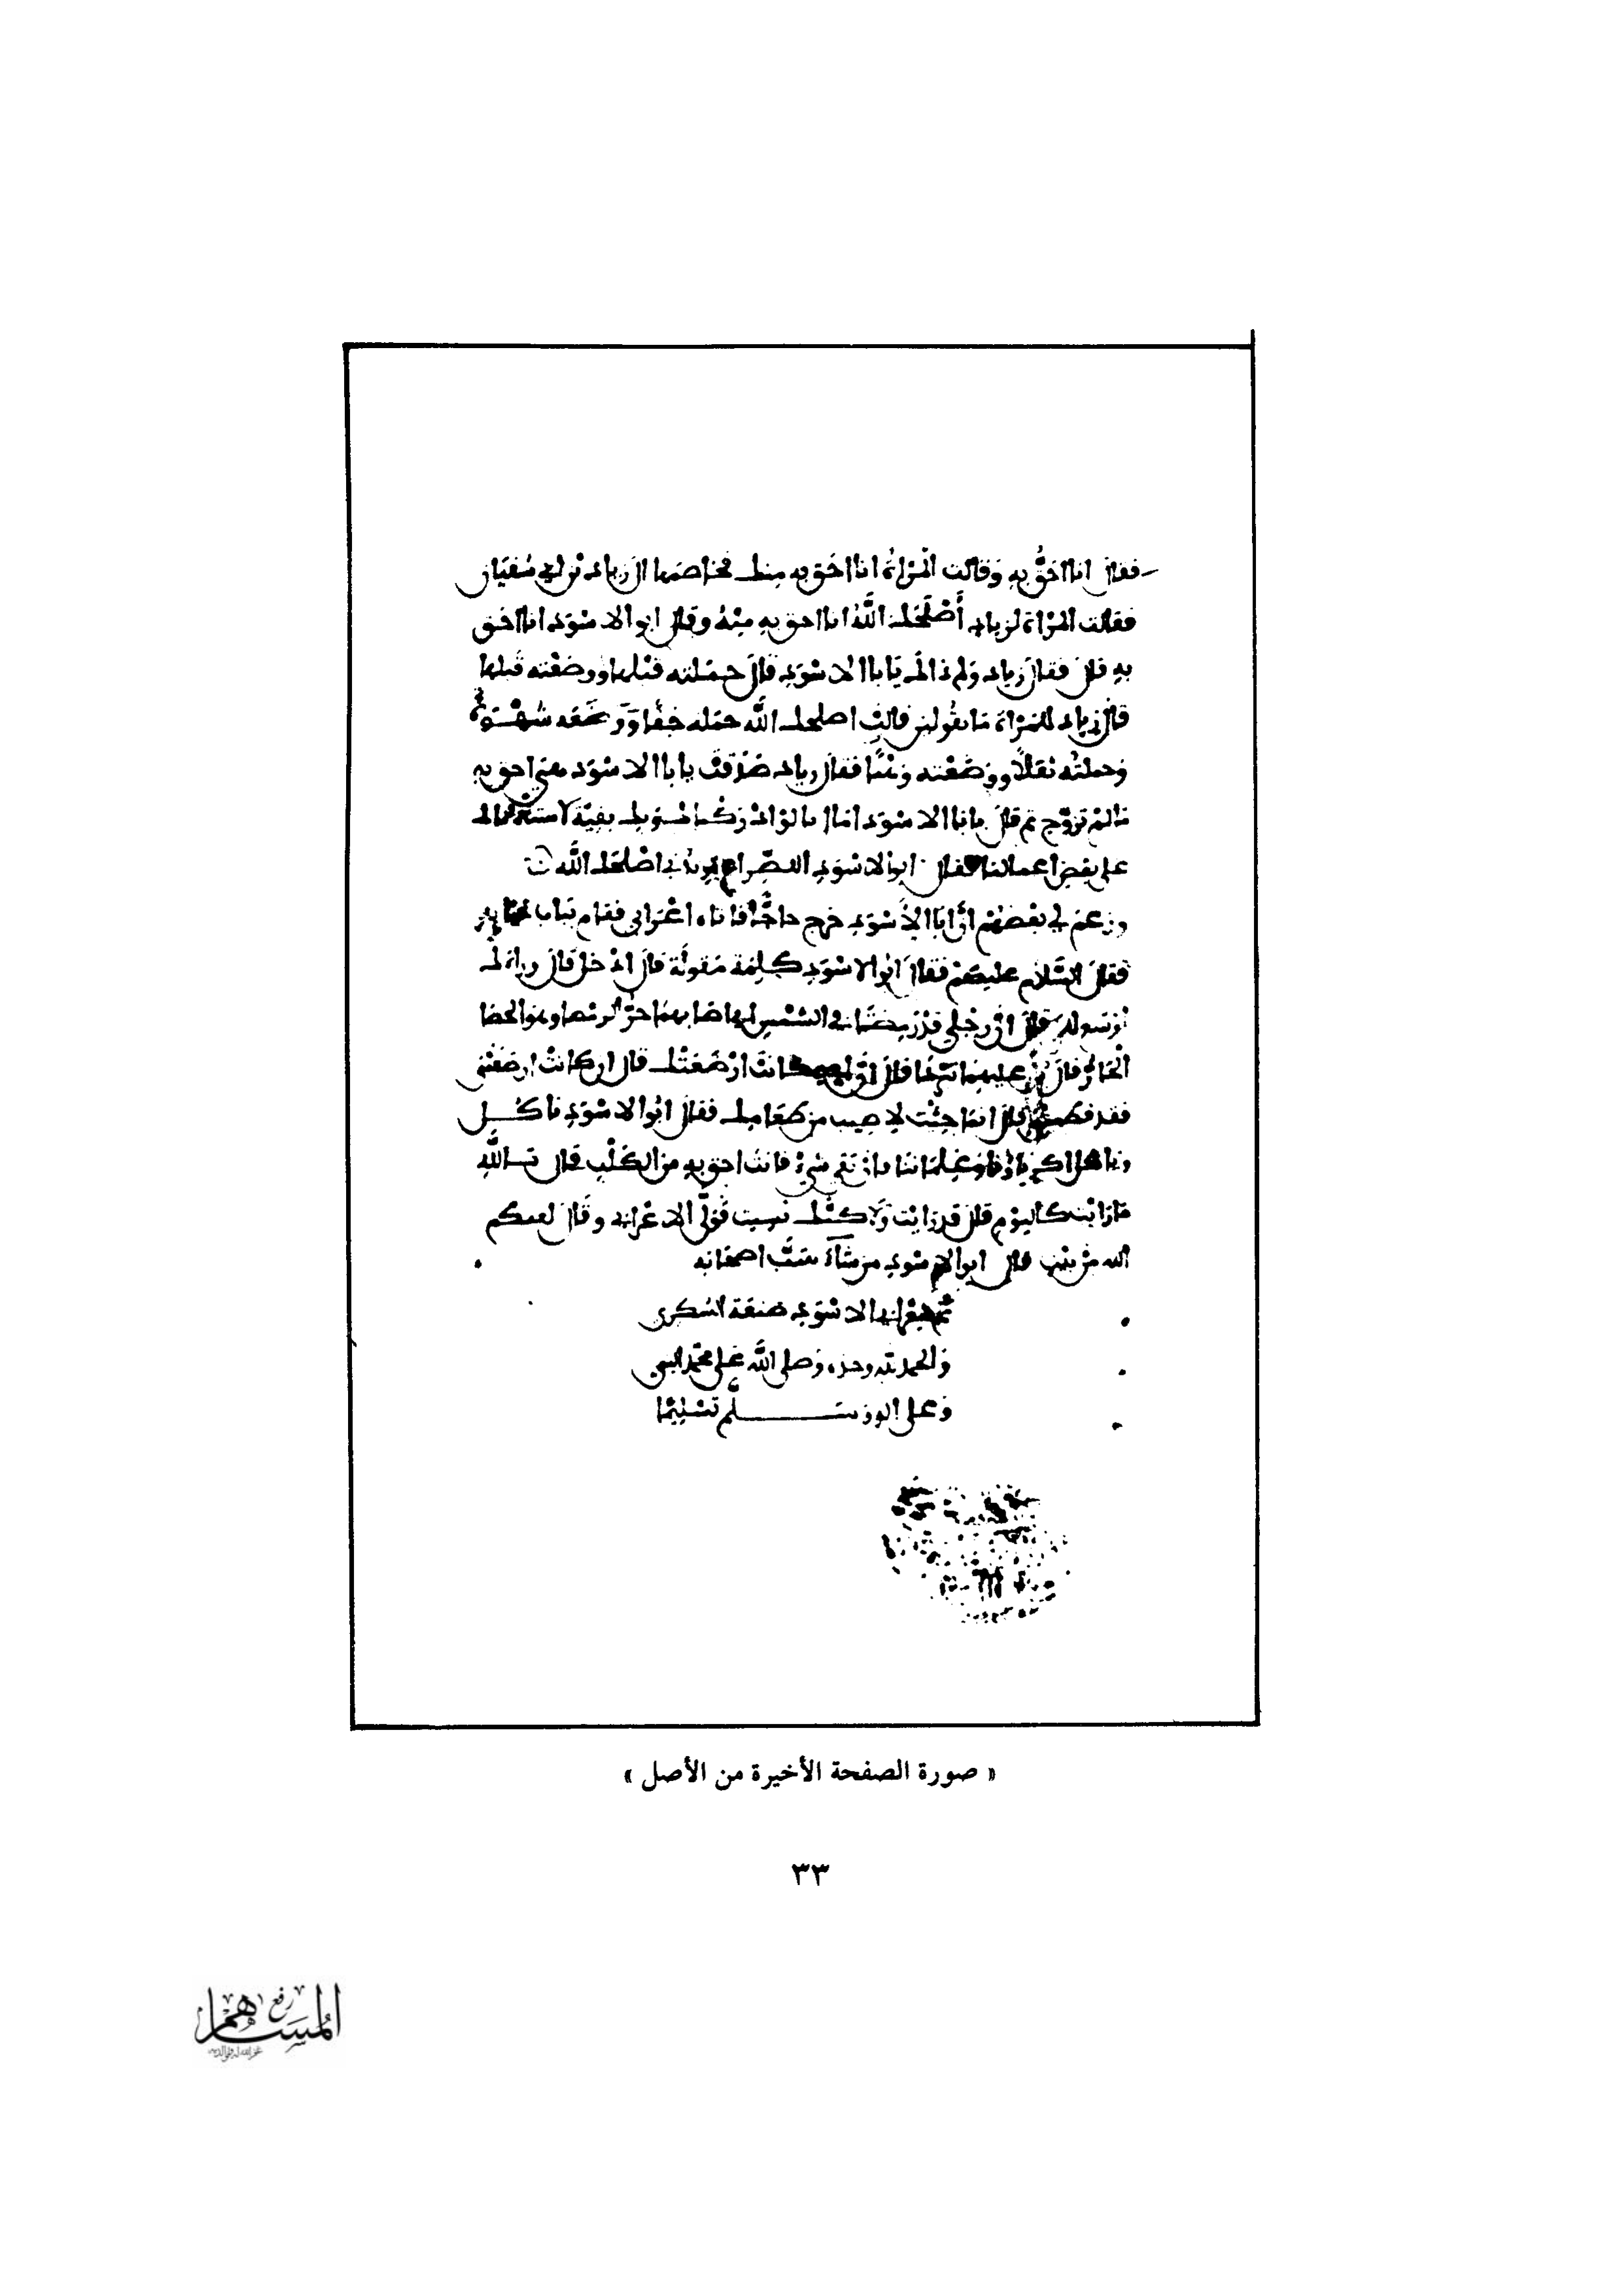 فقال انا احَقُّ بِهِ وَقالت المرْاةُ انا احَق بِهِ مِنك فخاصَمها الى زياد بْن ابي سُفيَان
فقالت المرْاة لزياد أَصْلَحَك اللَّهُ انا احق بِهِ مِنْهُ وقال ابو الاسْوَد انا احَق
بِهِ قال فقال زياد ولم ذاك يَا با الاسْوَدِ قالَ حمَلته قبْلها ووضَعْته قَبلها
قال زياد للمَرْاة مَا تقُولين قالتْ اصلحك اللَّه حمَله خِفًّا وَوَضَعَه شَهْوَةً
وَحملتُه ثقلًا ووَضَعْته فقال زياد صَدَقتْ يا با الاسْوَد هي احق بِهِ
مَا لمْ تزوَّج ثم قالَ يا با الاسْوَد اما لو ادْرَكْنَاكَ وَبِك بقِيّة لاستعملناك
على بعَضِ اعمالنا فقال ابو الاسْوَدِ اللصِّراع يريدُني اصْلحك اللَّه
وزعَمَ لي بعْضهُمْ انَّ ابَا الاسْوَدِ خرج حاجًّا فاتاه اعْرَابي فقام ببَاب
فقال السَّلام عليكمْ فقال ابُو الاسْوَدِ كلِمَة مَقولَة قال ادْخل قال وراءك
اوْسَع لك قال انَّ رجْلي قدْ رَمِضَتَا في الشَّمْسِ اي اصَابهمَا حَرُّ الرمْضا وهو الحصَا
الْحَارُّ قال بُلْ عليهِما تبْرُدَا قال كانتْ ارْضَعَتْك قال ان كانتْ ارضَعَتْني
فقد فطمتْني قال انمَا جئْت لاصِيب من طعَامِك فقال ابُو الاسْوَدِ نأكُل
فان بقي شيْءٌ فانتَ احق بِهِ من الكَلْبِ قال تاللَّهِ
مَا رَايْت كاليَوْمِ قال قد رَايْت وَلَاكِنَّك نَسِيت فَوَلَّى الاعْرَابي وقَال لعنكم
الله منْ قال ابو الاسْودِ من شَاءَ سَبَّ اصحَابه
تَمَّ شِعْرُ ابي الاسْوَدِ صَنعَة السُّكري
وَالحمد لله وحده وَصلى اللَّه عَلى محَمّد النبي
وَعلى اله وَسَلَّم تَسْلِيمًا
« صورة الصفحة الأخيرة من الأصل »
٣٣
رفع
المساهم
غفر الله له ولوالديه